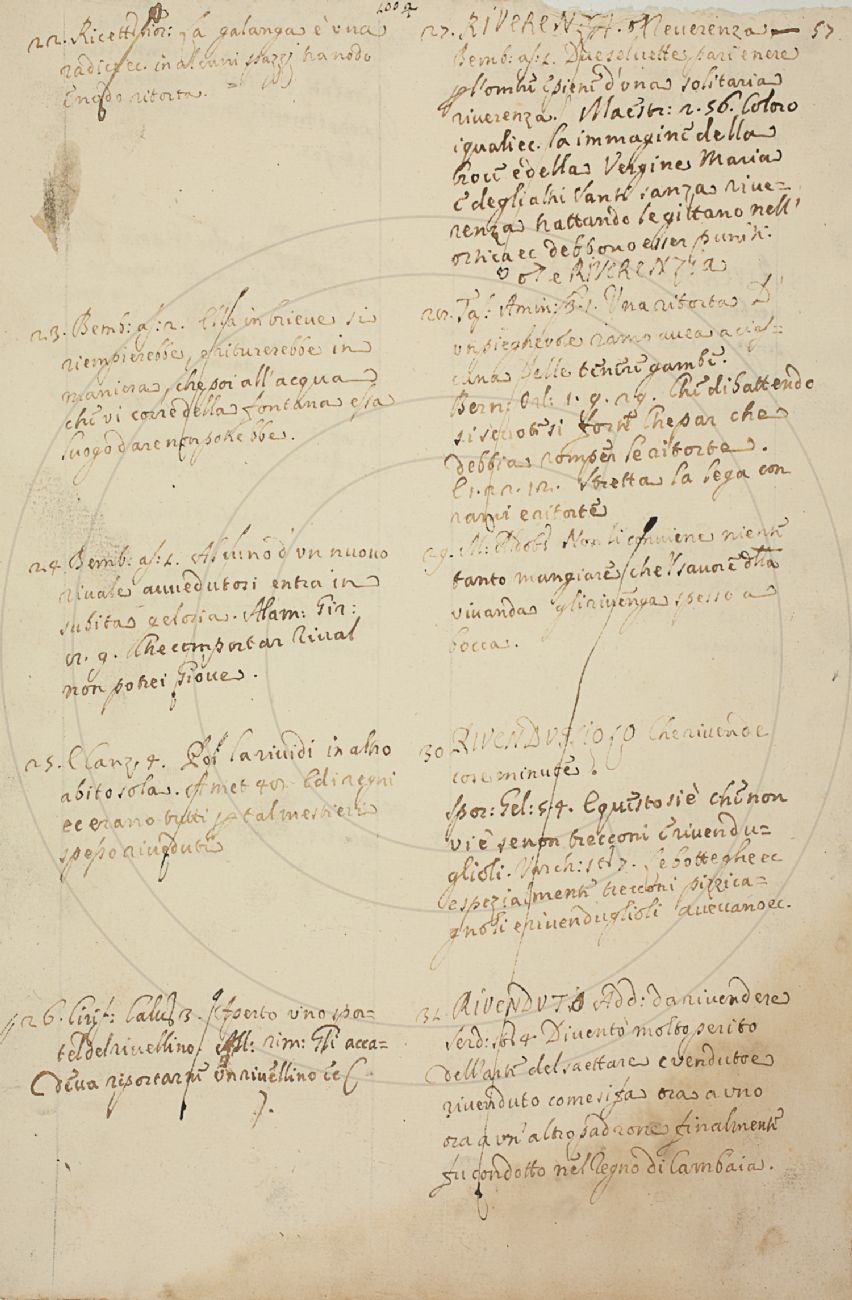 22. Ricett: fior: la galanga è vna
radice ec. in alcuni spazzi tra nodo
e nodo ritorta.
23. Bemb: as: 2. Ella in brieue si
riempierebbe, e riturerebbe in
maniera, che poi all'acqua
che vi corre della fontana essa
luogo dare non potrebbe.
24. Bemb: as: 1. Alcuno d'vn nuouo
riuale auuedutosi entra in
subita gelosia. Alam: Gir:
9. Che comportar riual
non potrei Gioue.
25. 4. Poi la riuidi in altro
abito sola. Amet 40. Ed i regni
ec erano tutti p tal mestiere
spesso riueduti
26. Cirif: Calu: 3. Aperto vno spor-
tel del riuellino. All: rim: Gli acca-
deua riportarne vn riuellino ec
27. RIVERENZA. o Reuerenza — 57
Bemb: as: 1. Due seluette pari e nere
p l'ombre e piene d'vna solitaria
riuerenza. Maestr: 2. 56. Coloro
i quali ec. la immagine della
Croce e della Vergine Maria
e degli altri Santi sanza riue=
renza trattando le gittano nell'
ortica ec debbono esser puniti.
o e RIVERENZIA
Tas: Amin: 3. 1. Vna ritorta d'
vn pieghevole ramo auea a cias-
cuna delle tenere gambe.
Bern: Orl: 1. 9. 29. Che dibattendo
si scuote si forte che par che
debbia romper le ritorte.
E 1. 22. 12. Stretta la lega con
rami e ritorte
29. M: Aldobr Non li conuiene niente
tanto mangiare, che 'l sauore della
viuanda gli riuenga spesso a
bocca.
30. RIVENDVGLIOLO Che riuende
cose minute.
Spor: Gel: 5 4. E questo si è che non
vi è se non trecconi e riuendu=
glioli. Varch: st: 7. Le botteghe ec
e spezialmente trecconi pizzica=
gnoli e riuenduglioli aueuano ec.
31. RIVENDVTO Add: da riuendere
Serd: st: 4 Diuentò molto perito
dell'arte del saettare e venduto e
riuenduto come si fa ora a vno
ora a vn'altro padrone finalmente
fu condotto nel Regno di Cambaia.